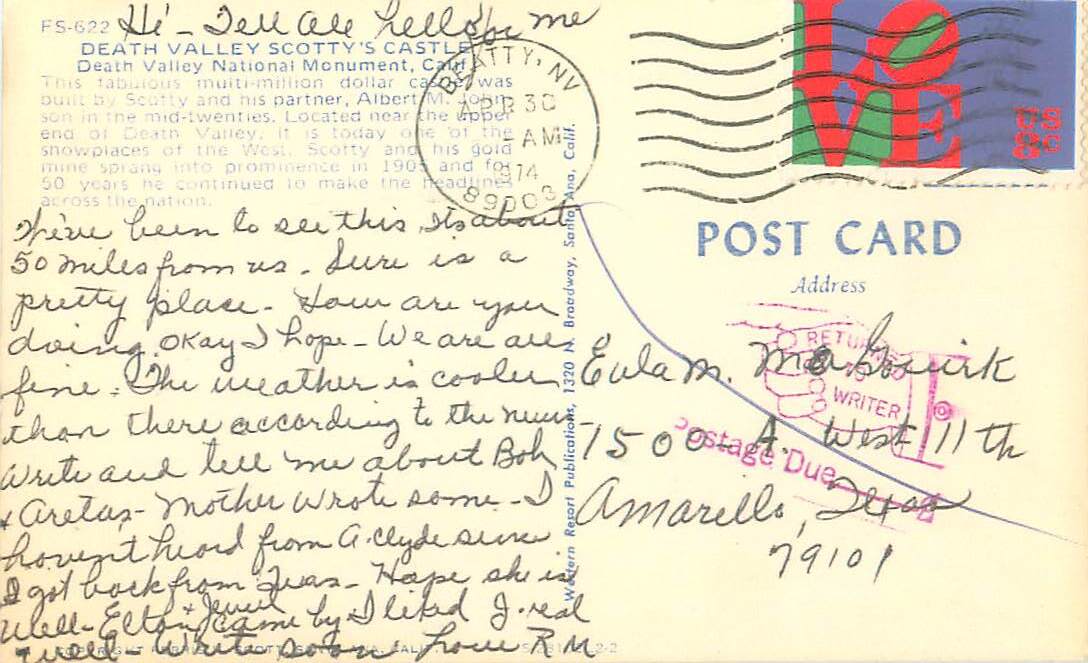 FS-622 Hi - Tell all hello for me
DEATH VALLEY SCOTTY'S CASTLE
Death Valley National Monument, Calif.
This fabulous multi-million dollar castle was
built by Scotty and his partner, Albert M. John-
son in the mid-twenties. Located near the upper
end of Death Valley, it is today one of the
showplaces of the West. Scotty and his gold
mine sprang into prominence in 1905 and for
50 years he continued to make the headlines
across the nation.
BEATTY, NV
APR 30
AM
1974
89003
LOVE
US
8c
We've been to see this, its about
50 miles from us. Sure is a
pretty place - How are you
doing. Okay I hope - We are all
fine. The weather is cooler
than there according to the news
Write and tell me about Bob
+ Aretas - Mother wrote some - I
havent heard from A. Clyde since
I got back from Texas - Hope she is
well - Elton + Jewell came by I liked J. real
well - Write soon love R M
Western Resort Publications, 1320 N. Broadway, Santa Ana, Calif.
POST CARD
Address
RETURNED
TO
WRITER
Postage Due
Eula M.
1500 - A. West 11th
Amarillo, Texas
79101